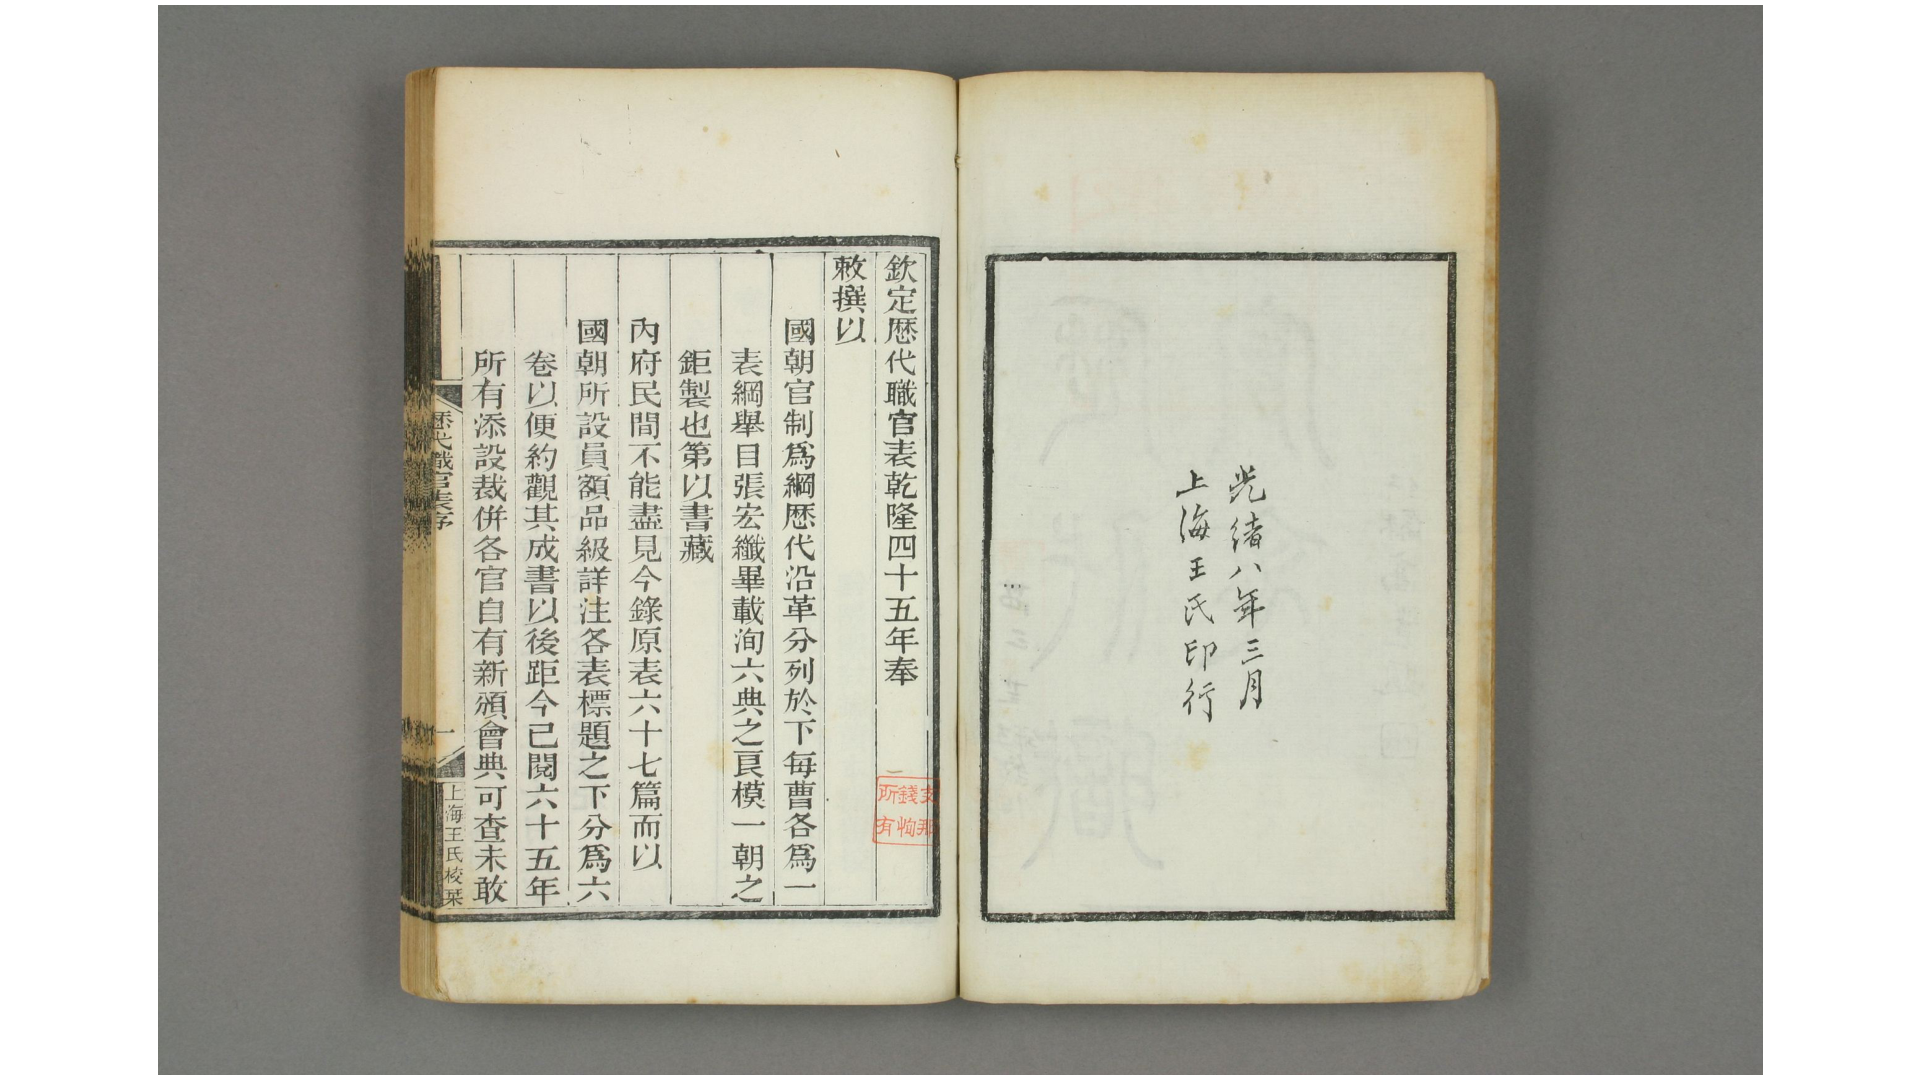 光緒八年三月
上海王氏印行
欽定歷代職官表乾隆四十五年奉
敕撰以
國朝官制爲綱歷代沿革分列於下每曹各爲一
表綱舉目張宏纖畢載洵六典之良模一朝之
鉅製也第以書藏
內府民間不能盡見今錄原表六十七篇而以
國朝所設員額品級詳注各表標題之下分爲六
卷以便約觀其成書以後距今已閱六十五年
所有添設裁併各官自有新頒會典可查未敢
歷代職官表序
一
上海王氏校栞
支那
錢恂
所有